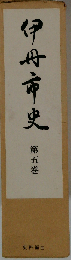 伊丹市史
第五巻